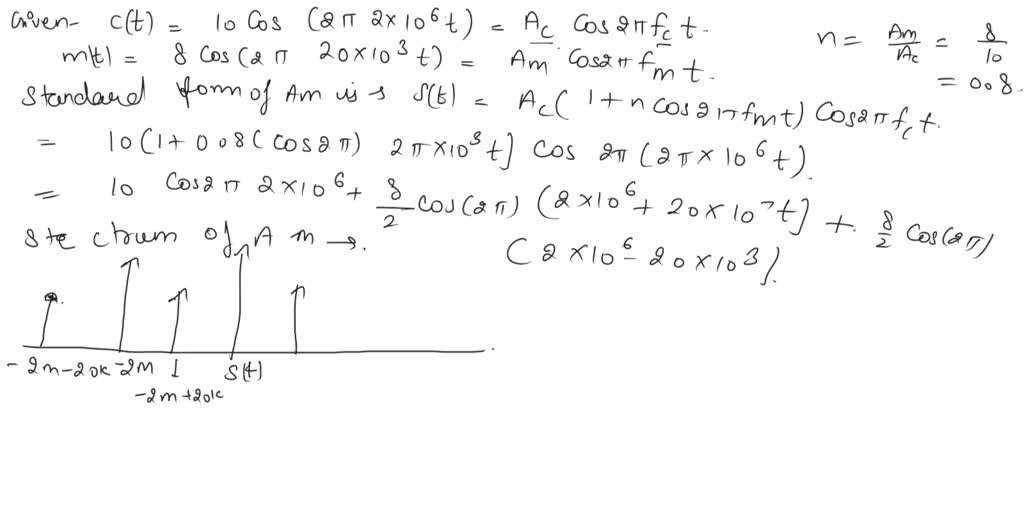 Given- c(t) = 10 Cos (2π 2×10⁶t) = Ac Cos 2πfc t.
m(t) = 8 Cos(2π 20×10³t) = Am Cos2π fm t.
n = Am/Ac = 8/10
= 0.8.
Standard form of Am is s S(t) = Ac(1+n cos 2πfmt) Cos2πfc t.
= 10(1+0.8(cos2π) 2π×10³t] cos 2π(2π×10⁶t)
= 10 Cos2π 2×10⁶ + 8/2 cos(2π) (2×10⁶ + 20×10⁷t] + 8/2 Cos(2π)
(2×10⁶ - 20×10³).
Ste ctrum of A m →.
-2m-20k -2M ↓ S(t)
-2m+20k